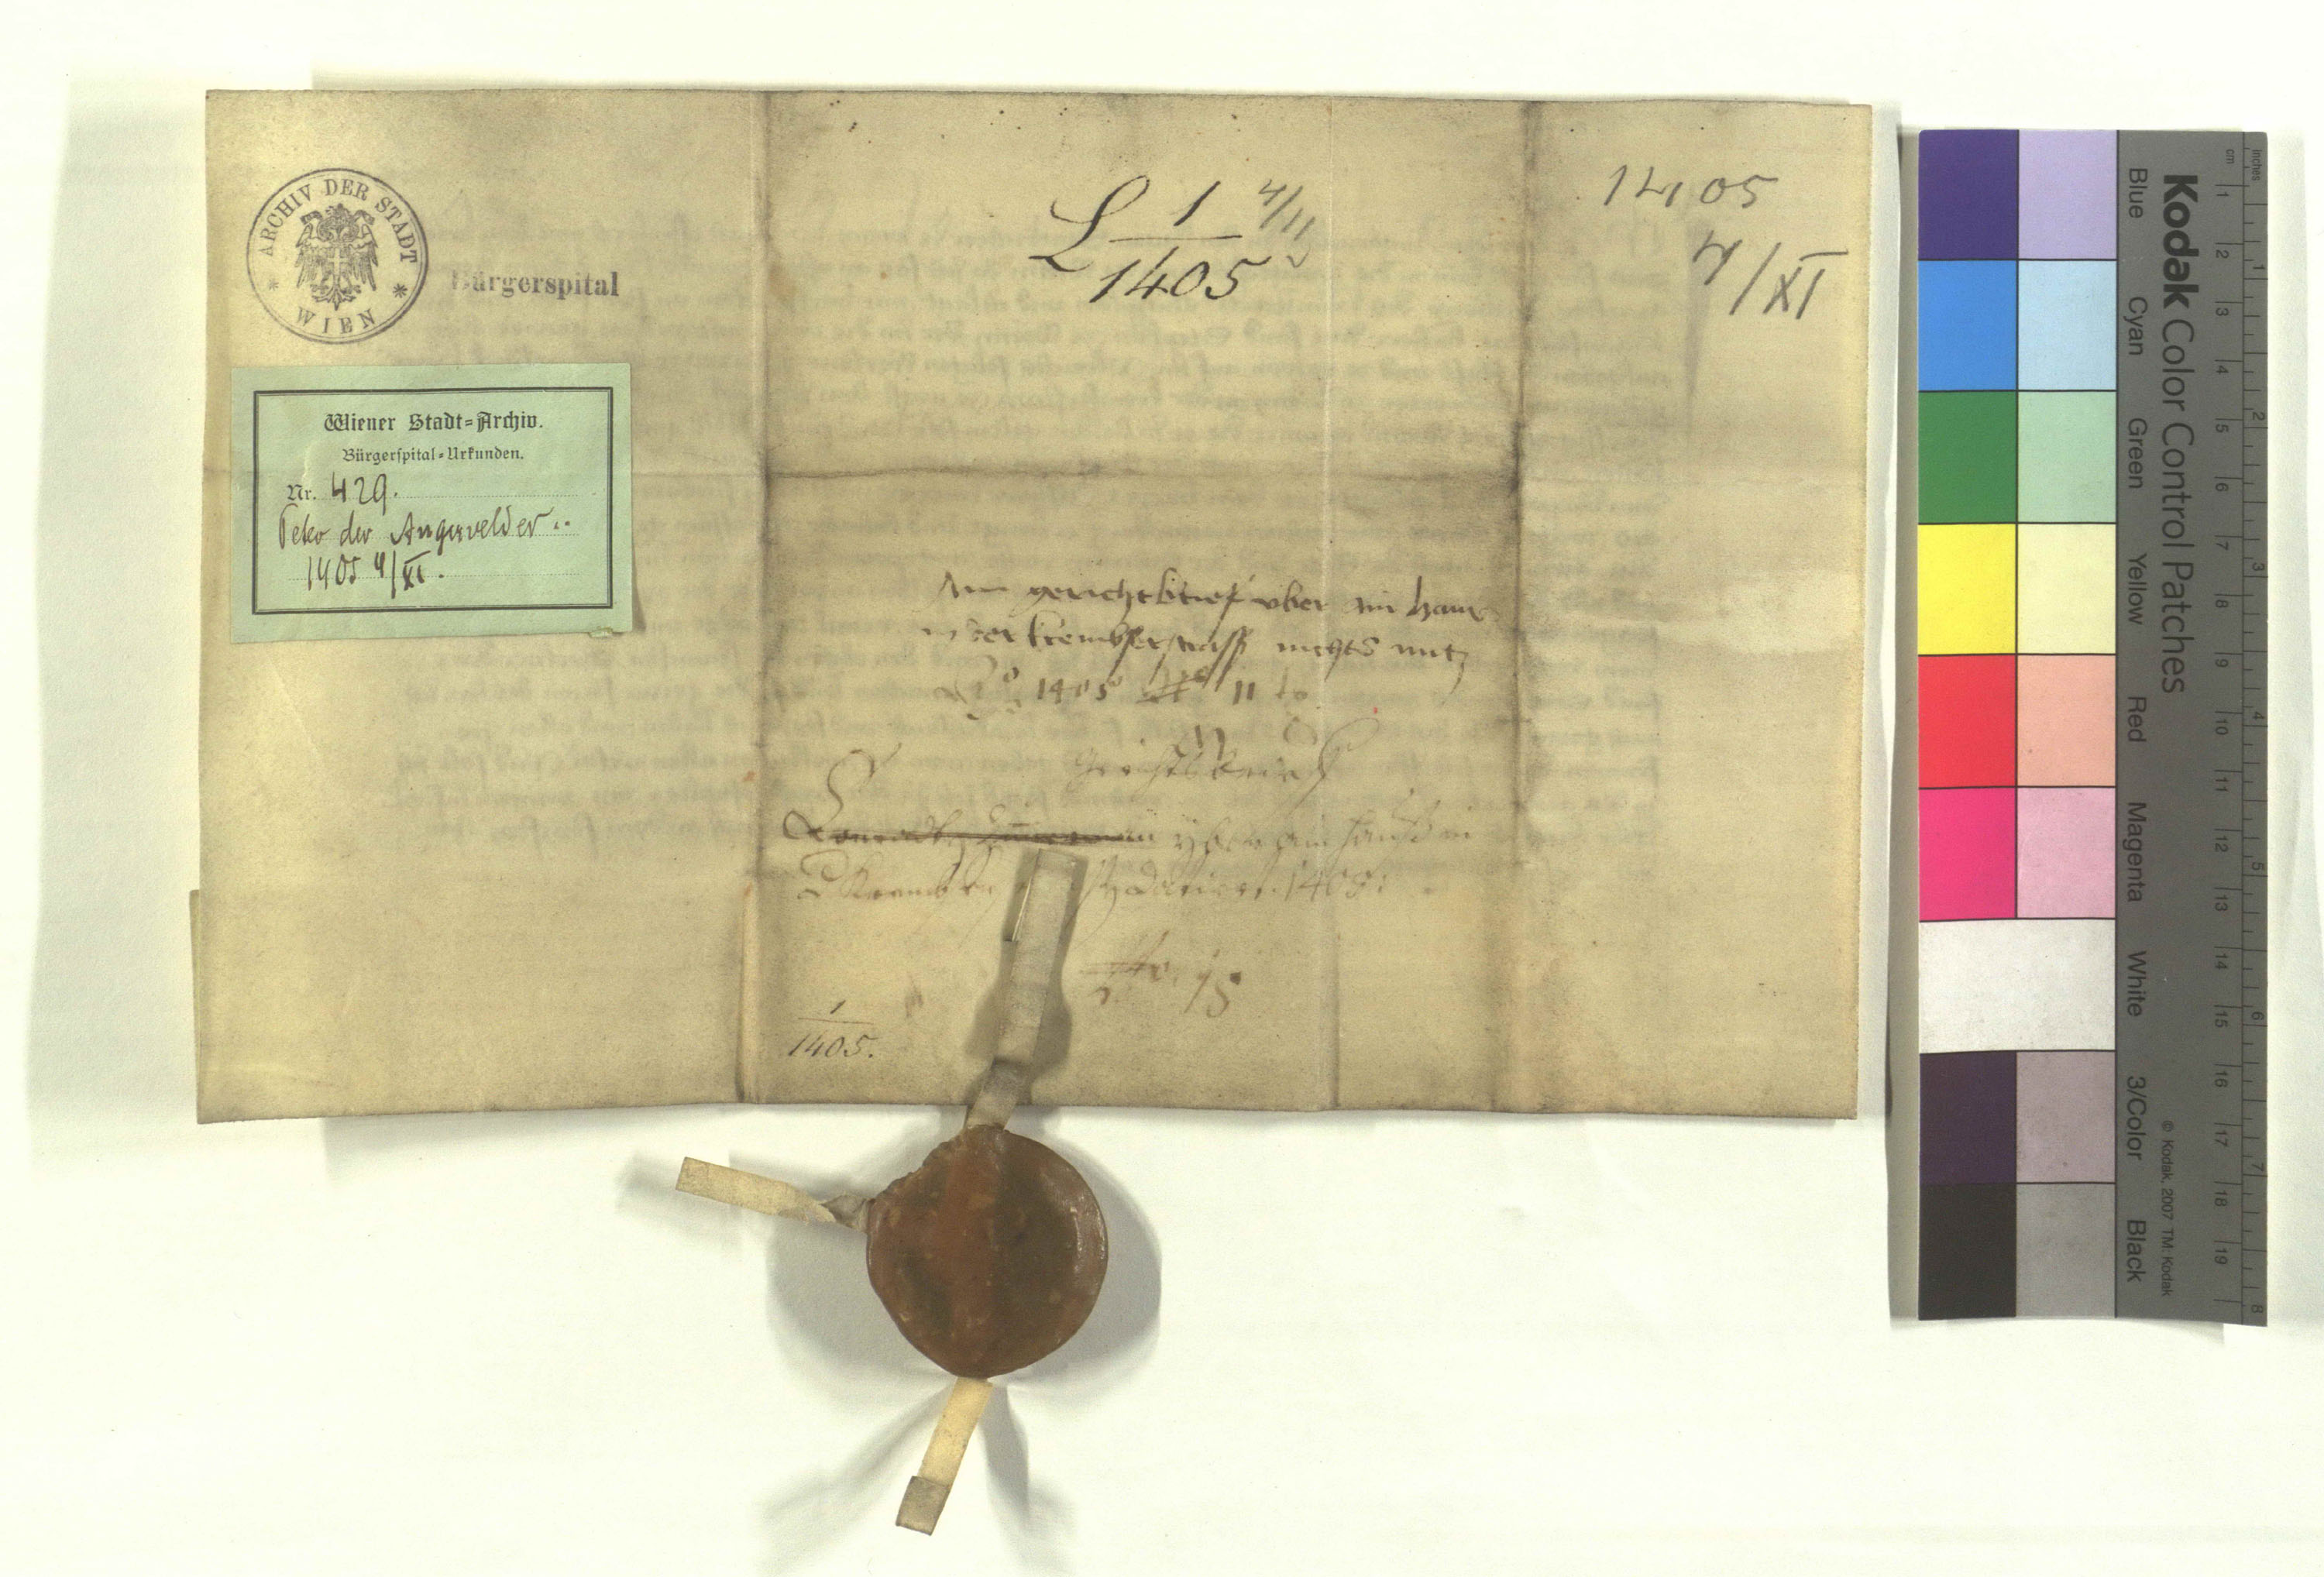 ARCHIV DER STADT
WIEN
Bürgerspital
L 1/1405 4/11
1405
4/XI
Wiener Stadt=Archiv.
Bürgerspital=Urkunden.
Nr. 429.
Peter der Angervelder..
1405 4/XI.
Ain gerichtbrief vber ain haus
in der krembserstrass nichts nutz
1405 11
gerichtsbrief
yber ain hauß in
datiert 1405:
1/1405.
Kodak Color Control Patches
Blue Cyan Green Yellow Red Magenta White 3/Color Black
© Kodak, 2007 TM: Kodak
cm 1 2 3 4 5 6 7 8 9 10 11 12 13 14 15 16 17 18 19
inches 1 2 3 4 5 6 7 8